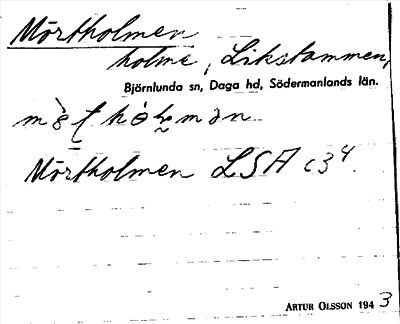 Mörtholmen
holme i Likstammen,
Björnlunda sn, Daga hd, Södermanlands län.
Mörtholmen LSA c34.
ARTUR OLSSON 1943